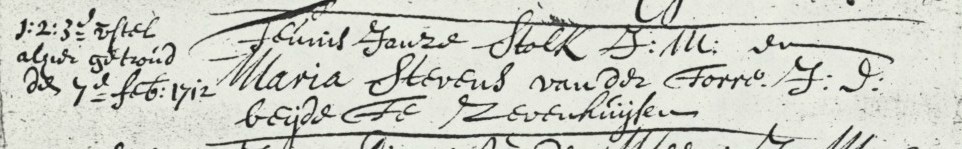 1: 2: 3d vstel
alhier getroud
den 7de feb: 1712
Teunis Janze Stolk J: M: en
Maria Stevens van der Torre. J: D:
beijde Te Zevenhuijsen